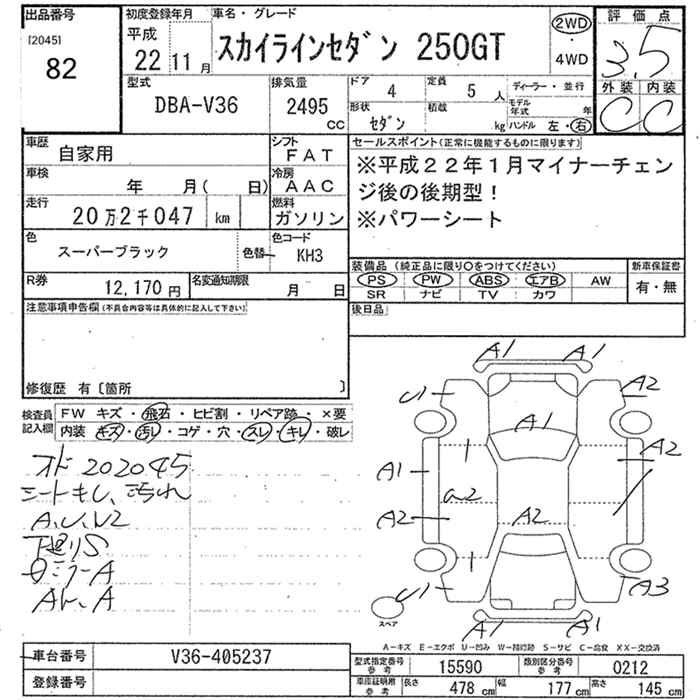 出品番号
[2045]
82
初度登録年月
平成
22 11 月
車名・グレード
スカイラインセダン 250GT
2WD
・
4WD
評価点
3.5
外装 内装
C C
型式
DBA-V36
排気量
2495
CC
ドア
4
定員
5 人
形状
セダン
積載
kg
ディーラー・並行
モデル年式
年
ハンドル 左・右
車歴
自家用
シフト
FAT
車検
年 月( 日)
冷房
AAC
走行
20万2千047 km
燃料
ガソリン
色
スーパーブラック
色替
色コード
KH3
R券
12,170 円
名変通知期限
月 日
セールスポイント(正常に機能するものに限ります)
※平成22年1月マイナーチェン
ジ後の後期型!
※パワーシート
装備品(純正品に限り○をつけてください)
PS PW ABS エアB AW
SR ナビ TV カワ
新車保証書
有・無
後日品
注意事項申告欄(不具合内容等は具体的に記入して下さい)
修復歴 有〔箇所 〕
検査員
記入欄
FW キズ・飛石・ヒビ割・リペア跡・×要
内装 キズ・汚レ・コゲ・穴・スレ・キレ・破レ
オド202045
シートキレ、汚れ
A,U,V2
下廻りS
A1 A1
U1 A2
A1
A1 A2
a2
A2 A2
U1 A3
A1 A1
スペア
A-キズ E-エクボ U-凹み W-補修跡 S-サビ C-腐食 XX-交換済
車台番号
V36-405237
登録番号
型式指定番号
参考
15590
類別区分番号
参考
0212
車庫証明用
参考
長さ
478 cm
幅
177 cm
高さ
145 cm